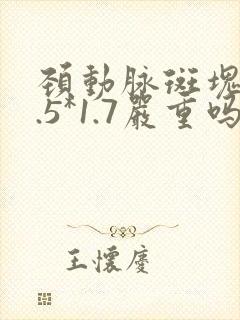 頚動脉斑塊
.5*1.7嚴重吗
王懷慶